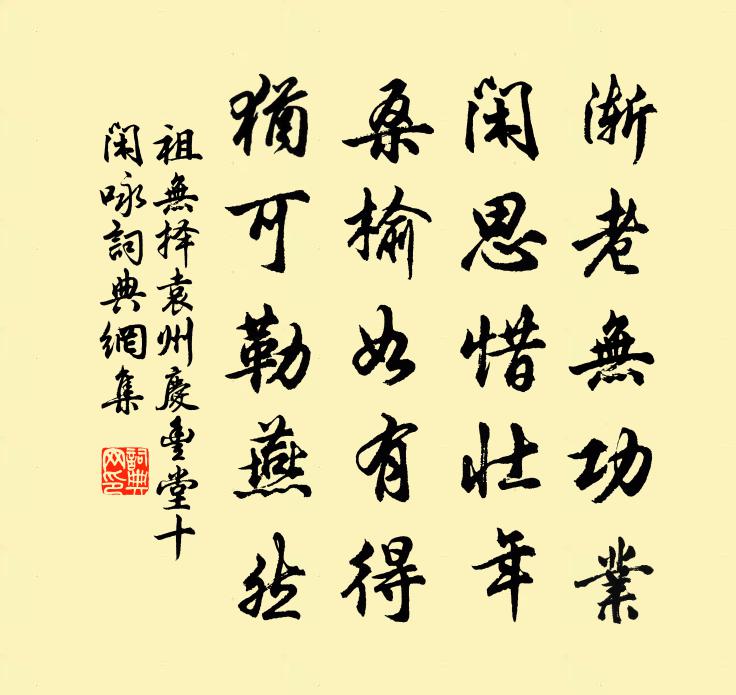 漸老無功業
閑思惜壯年
桑榆如有得
猶可勒燕然
祖無择袁州慶豐堂十
閑咏詞典網集
詞典
网印